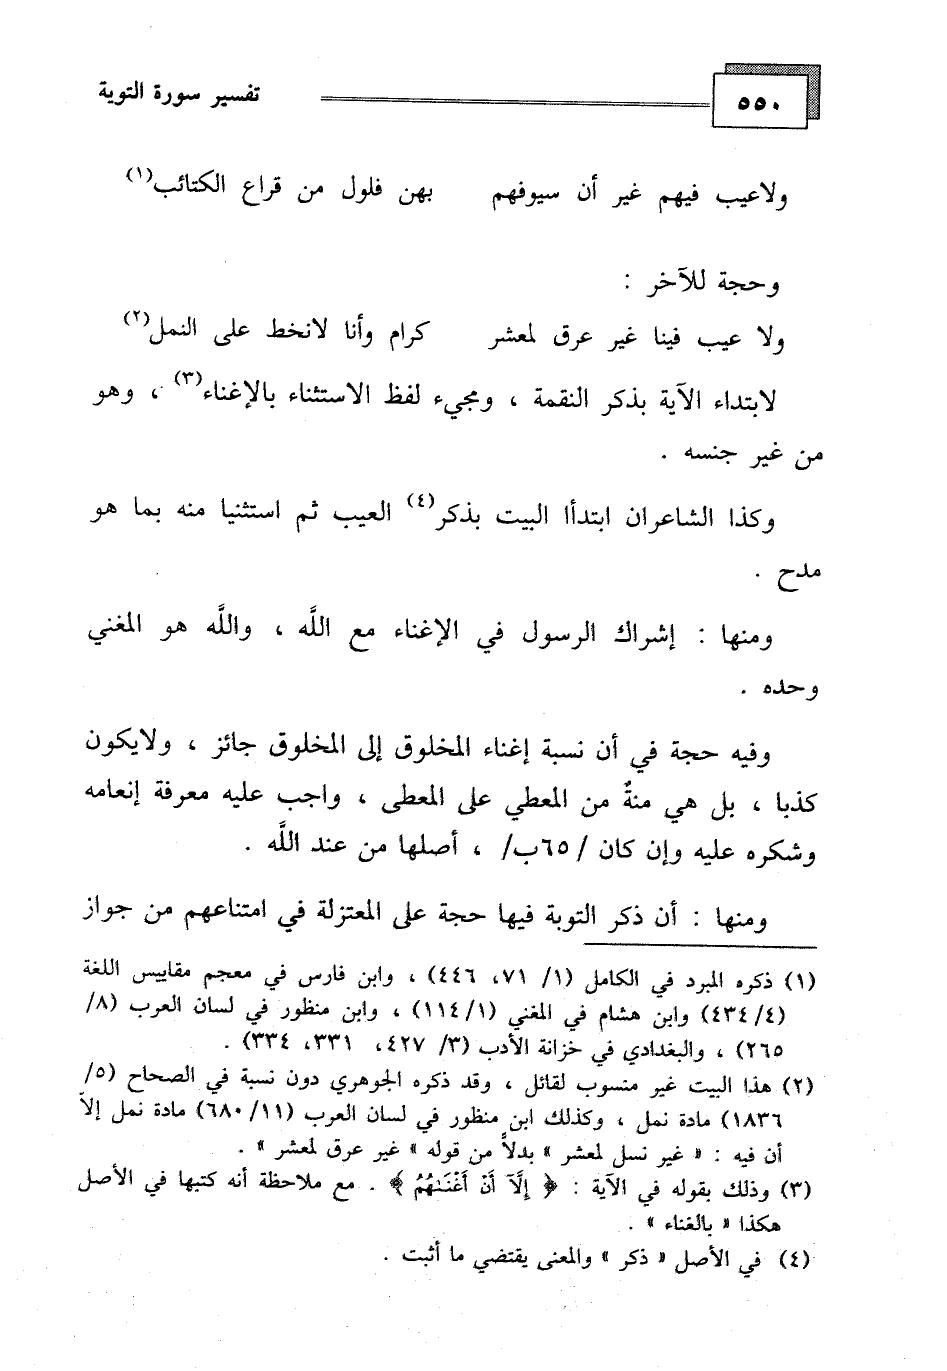 ٥٥٠ تفسير سورة التوبة
ولاعيب فيهم غير أن سيوفهم بهن فلول من قراع الكتائب(١)
وحجة للآخر :
ولا عيب فينا غير عرق لمعشر كرام وأنا لانخط على النمل(٢)
لابتداء الآية بذكر النقمة ، ومجيء لفظ الاستثناء بالإغناء(٣) ، وهو
من غير جنسه .
وكذا الشاعران ابتدأا البيت بذكر(٤) العيب ثم استثنيا منه بما هو
مدح .
ومنها : إشراك الرسول في الإغناء مع اللَّه ، واللَّه هو المغني
وحده .
وفيه حجة في أن نسبة إغناء المخلوق إلى المخلوق جائز ، ولايكون
كذبا ، بل هي منةٌ من المعطي على المعطى ، واجب عليه معرفة إنعامه
وشكره عليه وإن كان /٦٥ب/ ، أصلها من عند اللَّه .
ومنها : أن ذكر التوبة فيها حجة على المعتزلة في امتناعهم من جواز
(١) ذكره المبرد في الكامل (١/ ٧١، ٤٤٦) ، وابن فارس في معجم مقاييس اللغة
(٤/٤٣٤) وابن هشام في المغني (١/١١٤) ، وابن منظور في لسان العرب (٨/
٢٦٥) ، والبغدادي في خزانة الأدب (٣/ ٤٢٧، ٣٣١، ٣٣٤) .
(٢) هذا البيت غير منسوب لقائل ، وقد ذكره الجوهري دون نسبة في الصحاح (٥/
١٨٣٦) مادة نمل ، وكذلك ابن منظور في لسان العرب (١١/ ٦٨٠) مادة نمل إلاّ
أن فيه : « غير نسل لمعشر » بدلاً من قوله « غير عرق لمعشر » .
(٣) وذلك بقوله في الآية : ﴿ إِلَّآ أَنْ أَغْنَىٰهُمُ ﴾ . مع ملاحظة أنه كتبها في الأصل
هكذا « بالغناء » .
(٤) في الأصل « ذكر » والمعنى يقتضي ما أثبت .